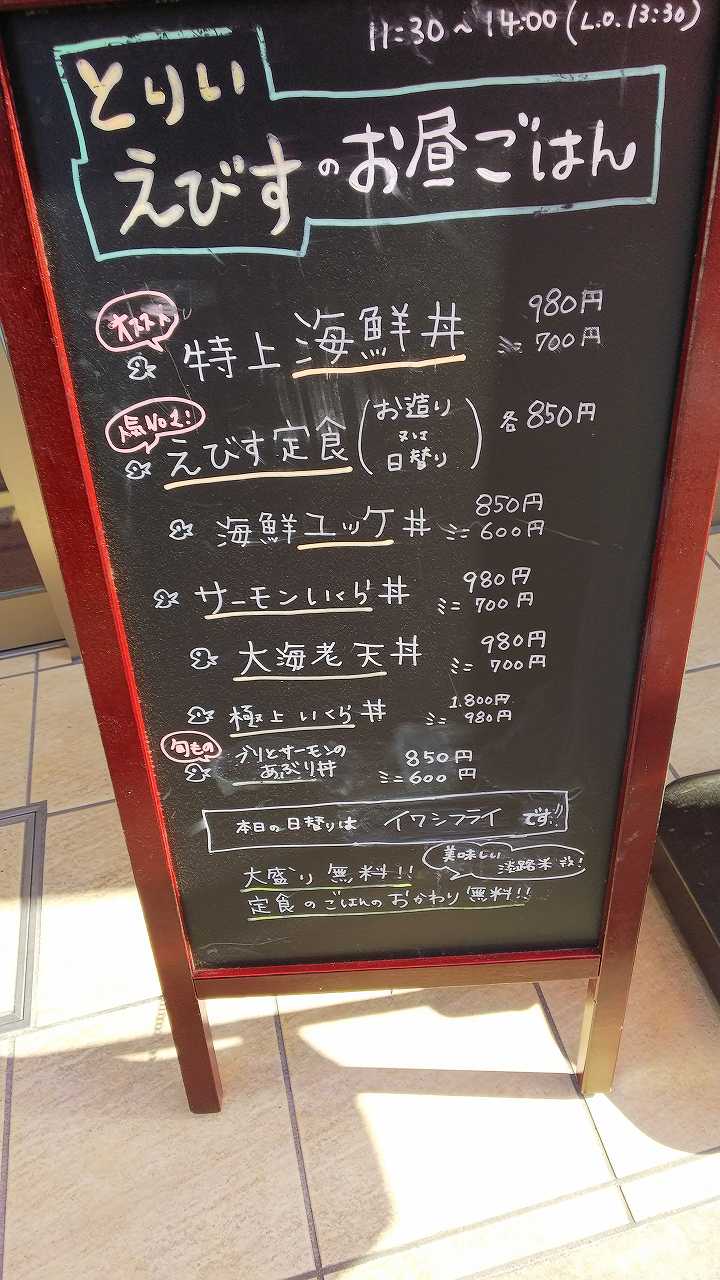 11:30～14:00(L.O.13:30)
とりい
えびすのお昼ごはん
オススメ
特上海鮮丼 980円
ミニ 700円
人気No1!
えびす定食(お造り又は日替り) 各850円
海鮮ユッケ丼 850円
ミニ 600円
サーモンいくら丼 980円
ミニ 700円
大海老天丼 980円
ミニ 700円
極上いくら丼 1.800円
ミニ 980円
旬もの
ブリとサーモンの
あぶり丼 850円
ミニ 600円
本日の日替りは イワシフライ です!!
大盛り無料!!
美味しい
淡路米
定食のごはんのおかわり無料!!